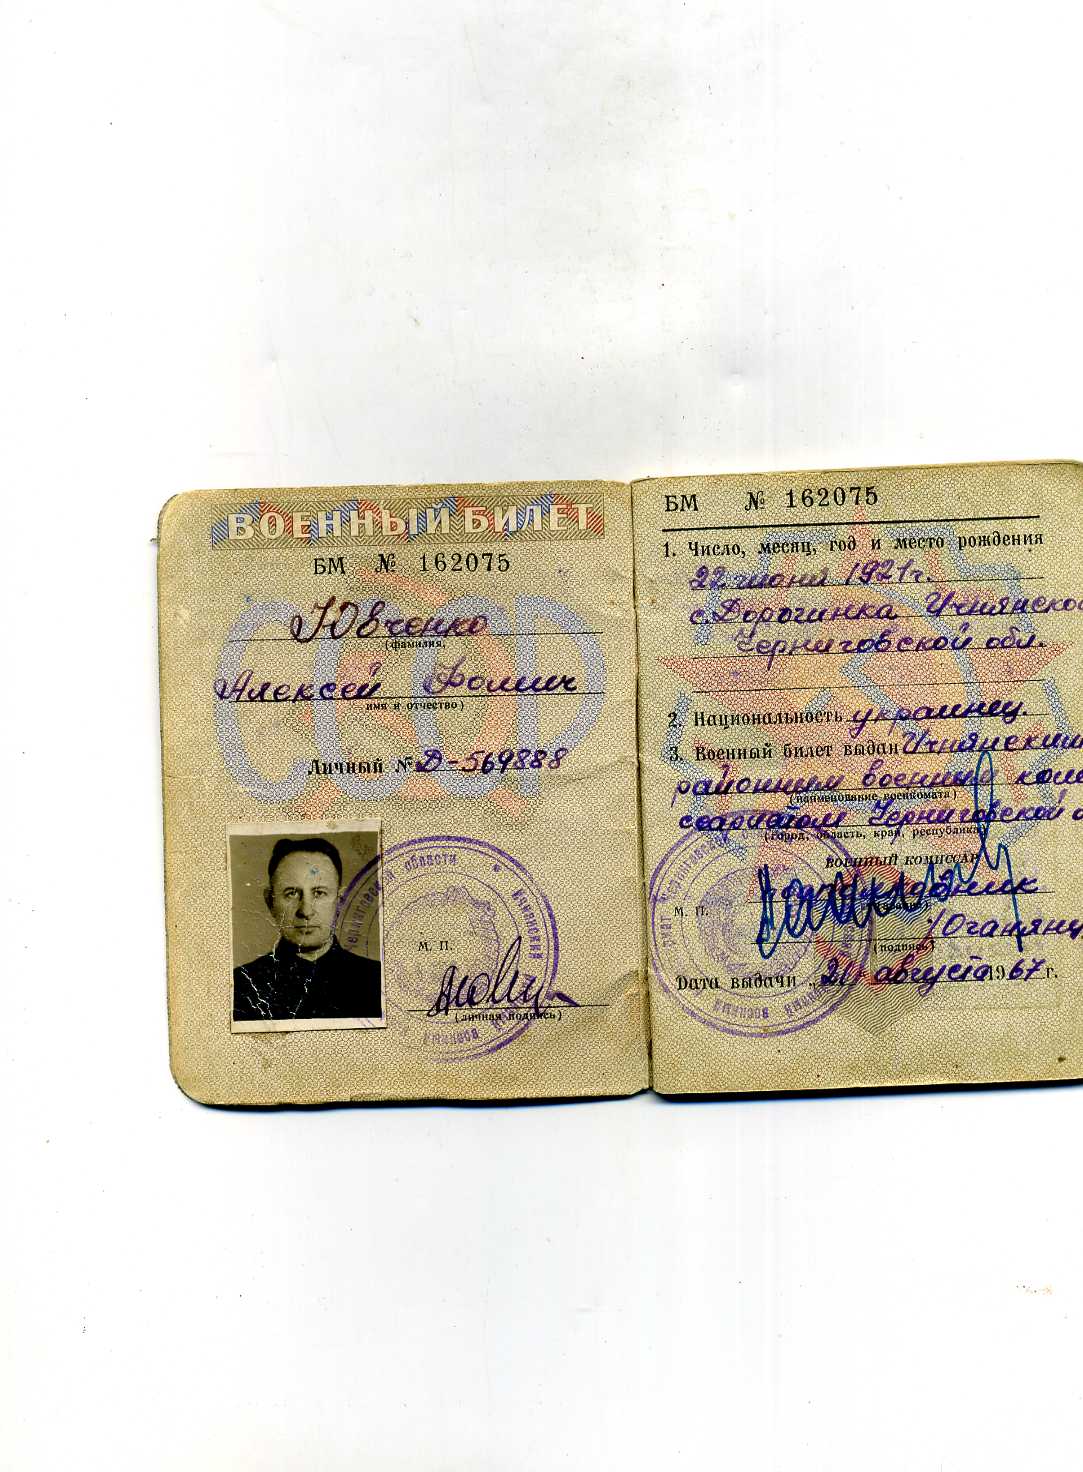 ВОЕННЫЙ БИЛЕТ
БМ № 162075
СССР
Ювченко
(фамилия,
Алексей Фомич
имя и отчество)
Личный № Д-569888
М. П.
(личная подпись)
БМ № 162075
1. Число, месяц, год и место рождения
22 июня 1921 г.
с. Дорогинка Ичнянско
Черниговской обл.
2. Национальность украинец.
3. Военный билет выдан Ичнянским
районным военным коми
(наименование военкомата)
ссариатом Черниговской о
(город, область, край, республика)
ВОЕННЫЙ КОМИССАР
подполковник
М. П.
/Оганянц
(подпись)
Дата выдачи „21“ августа 1967 г.